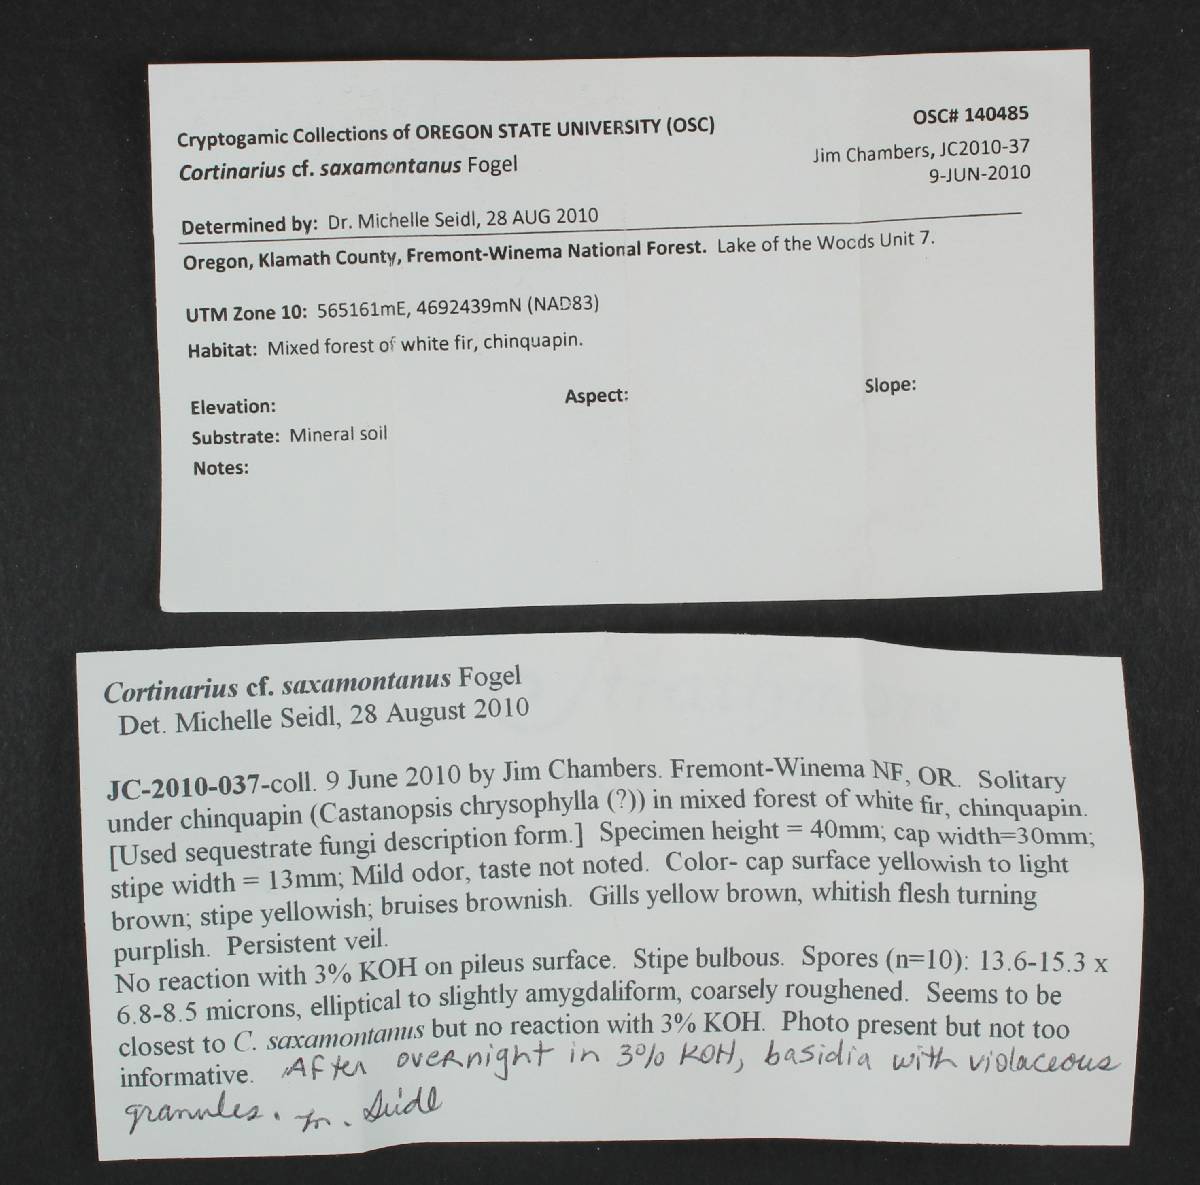 Cryptogamic Collections of OREGON STATE UNIVERSITY (OSC)
OSC# 140485
Cortinarius cf. saxamontanus Fogel
Jim Chambers, JC2010-37
9-JUN-2010
Determined by: Dr. Michelle Seidl, 28 AUG 2010
Oregon, Klamath County, Fremont-Winema National Forest. Lake of the Woods Unit 7.
UTM Zone 10: 565161mE, 4692439mN (NAD83)
Habitat: Mixed forest of white fir, chinquapin.
Elevation:
Aspect:
Slope:
Substrate: Mineral soil
Notes:
Cortinarius cf. saxamontanus Fogel
Det. Michelle Seidl, 28 August 2010
JC-2010-037-coll. 9 June 2010 by Jim Chambers. Fremont-Winema NF, OR. Solitary
under chinquapin (Castanopsis chrysophylla (?)) in mixed forest of white fir, chinquapin.
[Used sequestrate fungi description form.] Specimen height = 40mm; cap width=30mm;
stipe width = 13mm; Mild odor, taste not noted. Color- cap surface yellowish to light
brown; stipe yellowish; bruises brownish. Gills yellow brown, whitish flesh turning
purplish. Persistent veil.
No reaction with 3% KOH on pileus surface. Stipe bulbous. Spores (n=10): 13.6-15.3 x
6.8-8.5 microns, elliptical to slightly amygdaliform, coarsely roughened. Seems to be
closest to C. saxamontanus but no reaction with 3% KOH. Photo present but not too
informative. After overnight in 3% KOH, basidia with violaceous
granules. M. Seidl